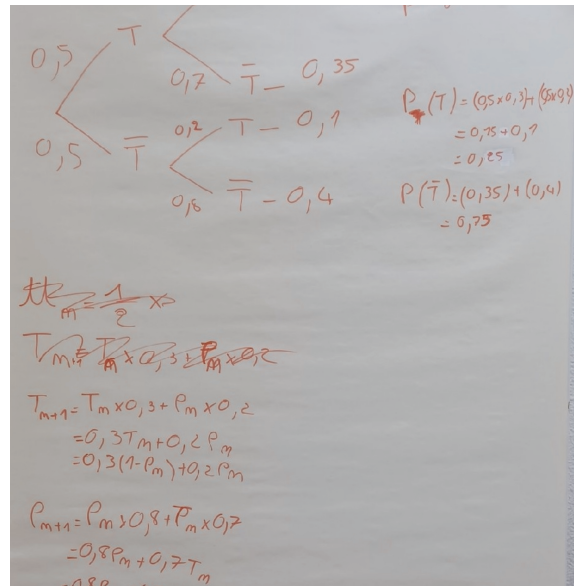 0,5 T
0,7 T̄ - 0,35
0,2 T - 0,1
0,5 T̄
0,8 T̄ - 0,4
P (T) = (0,5 x 0,3) + (0,5x0,2)
= 0,15 + 0,1
= 0,25
P(T̄) = (0,35) + (0,4)
= 0,75
T_{m+1} = T_m x 0,3 + P_m x 0,2
= 0,3T_m + 0,2 P_m
= 0,3(1-P_m) + 0,2P_m
P_{m+1} = P_m x 0,8 + T_m x 0,7
= 0,8P_m + 0,7 T_m